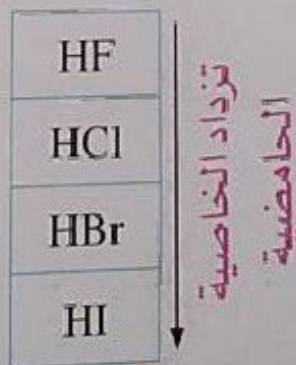 HF
HCl
HBr
HI
تزداد الخاصية
الحامضية